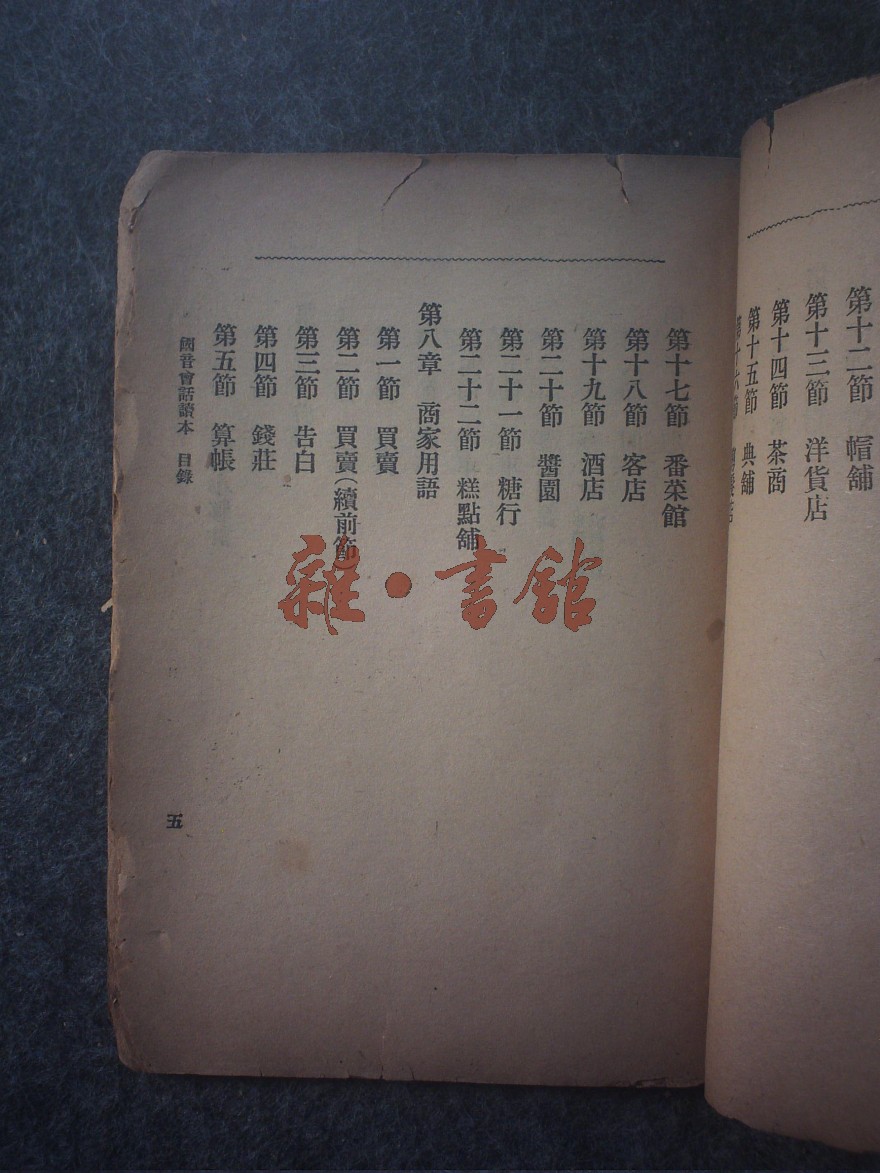 第十二節　帽舖
第十三節　洋貨店
第十四節　茶商
第十五節　典舖
第十六節
第十七節　番菜館
第十八節　客店
第十九節　酒店
第二十節　醬園
第二十一節　糖行
第二十二節　糕點舖
第八章　商家用語
第一節　買賣
第二節　買賣(續前節)
第三節　告白
第四節　錢莊
第五節　算帳
國音會話讀本　目錄
五
雜・書館